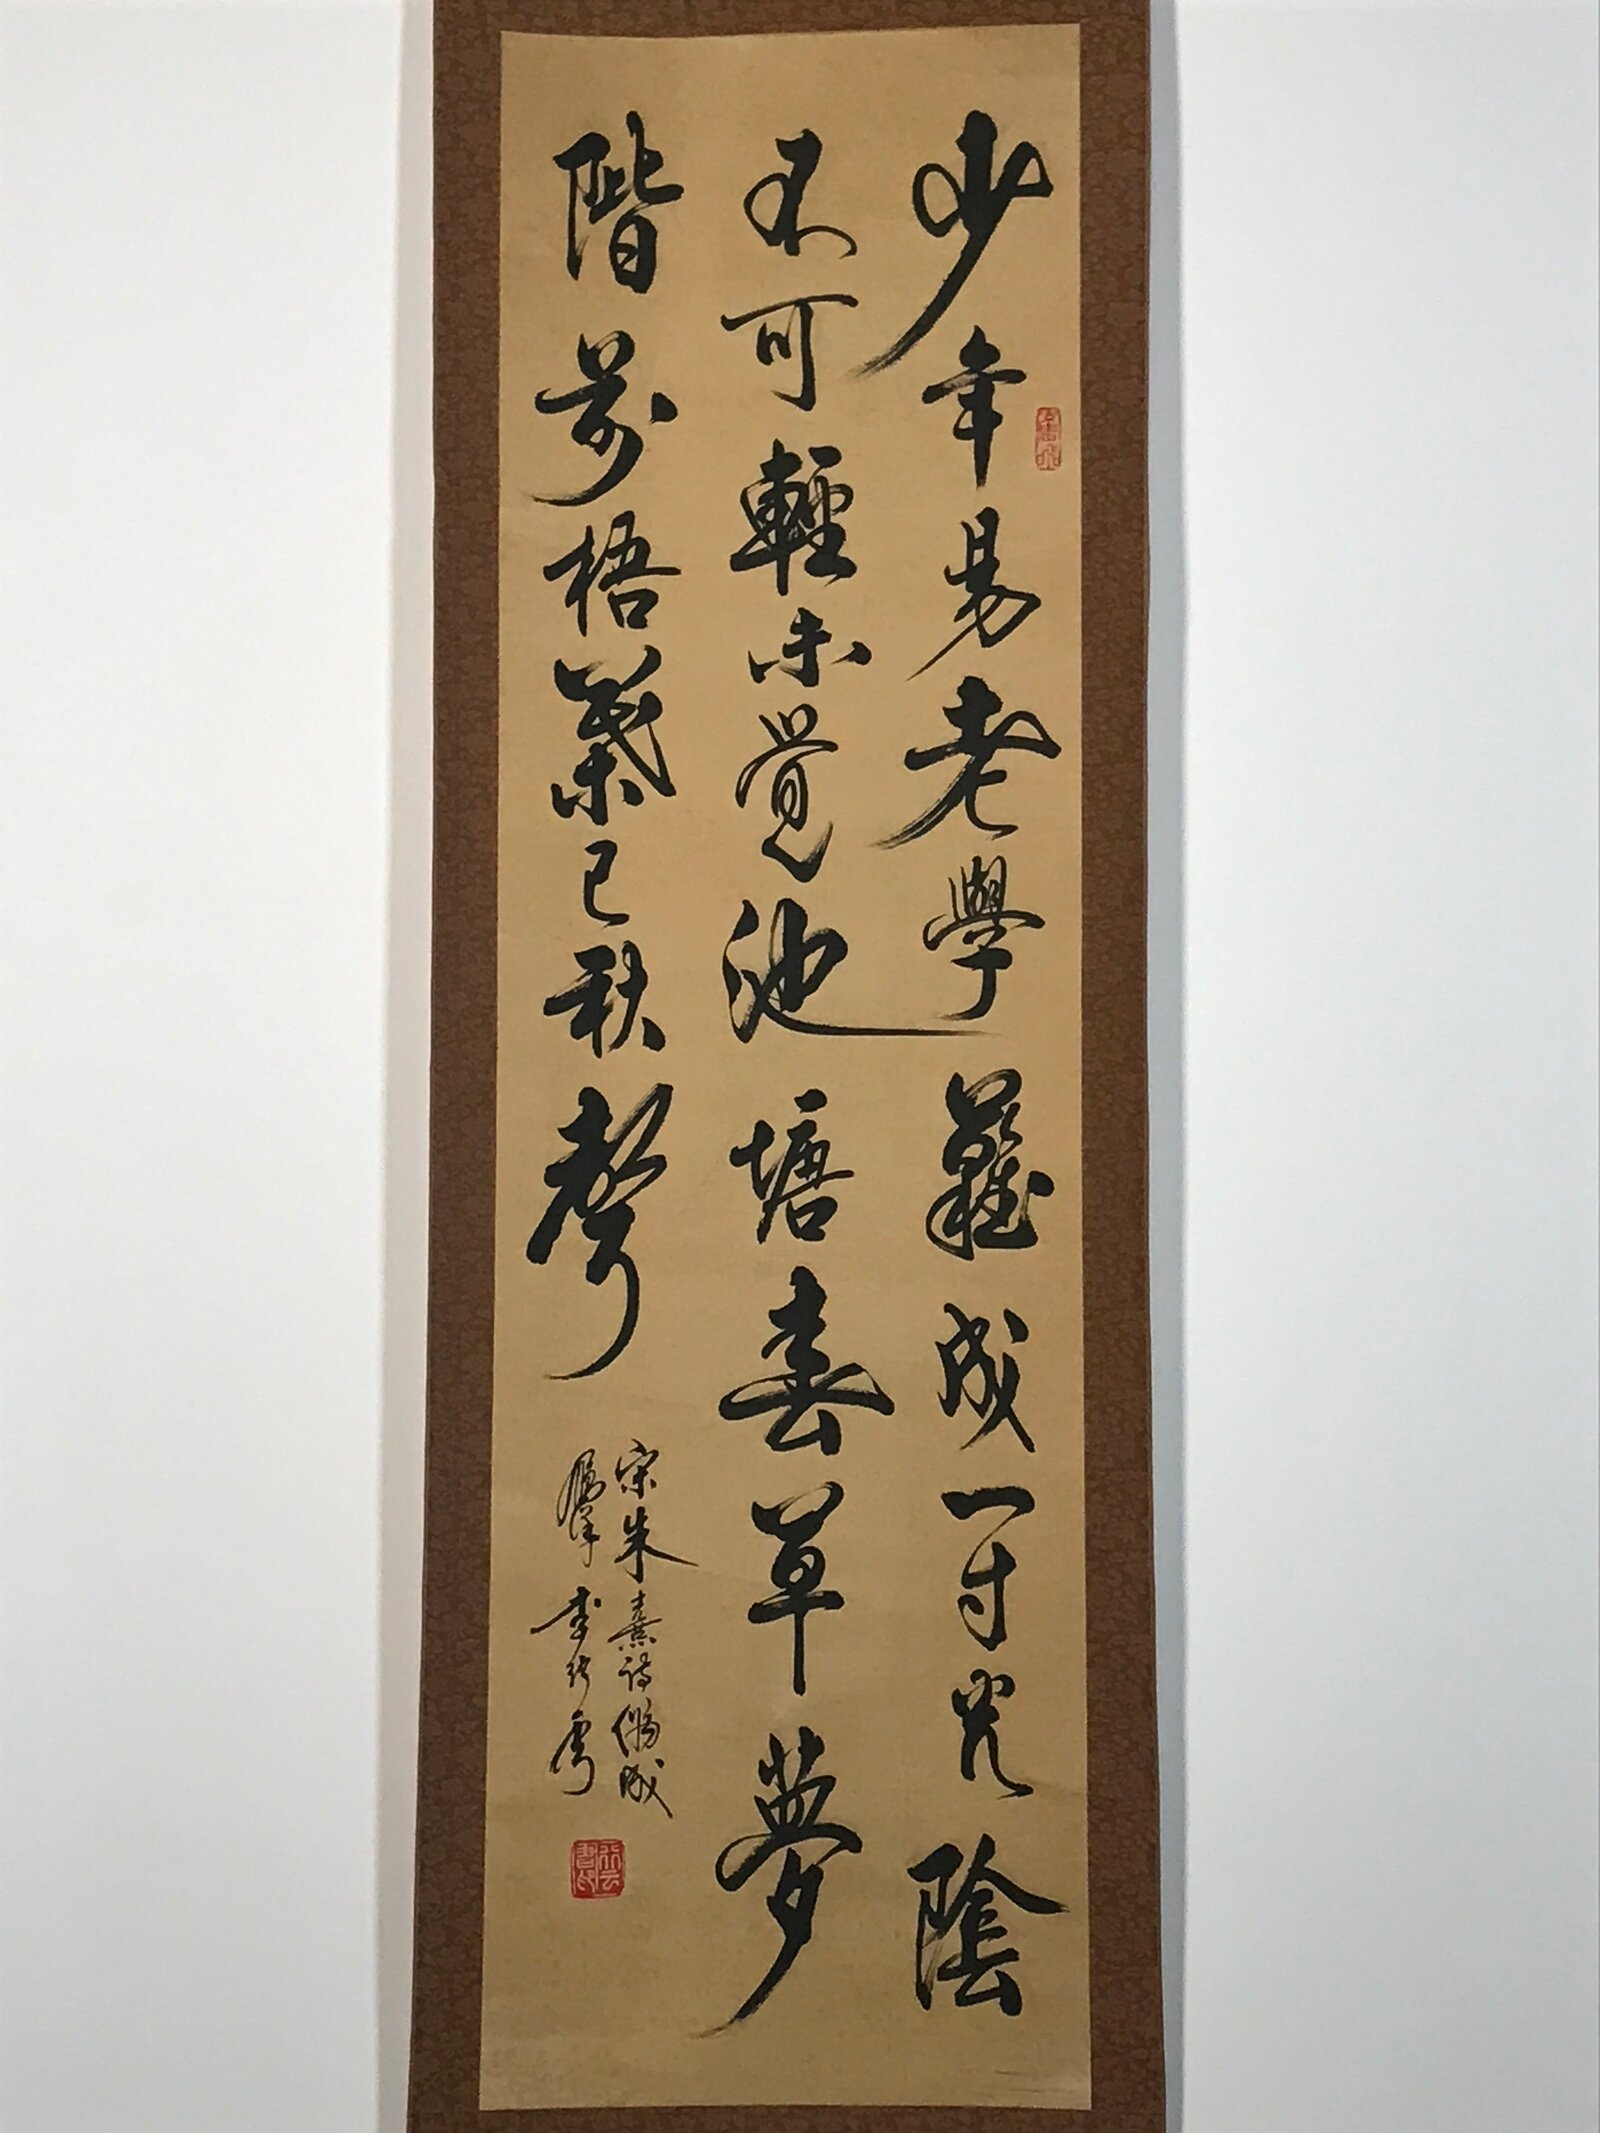 少年易老學難成一寸光陰
不可輕未覺池塘春草夢
階前梧葉已秋聲
宋朱熹詩偶成
李行雲